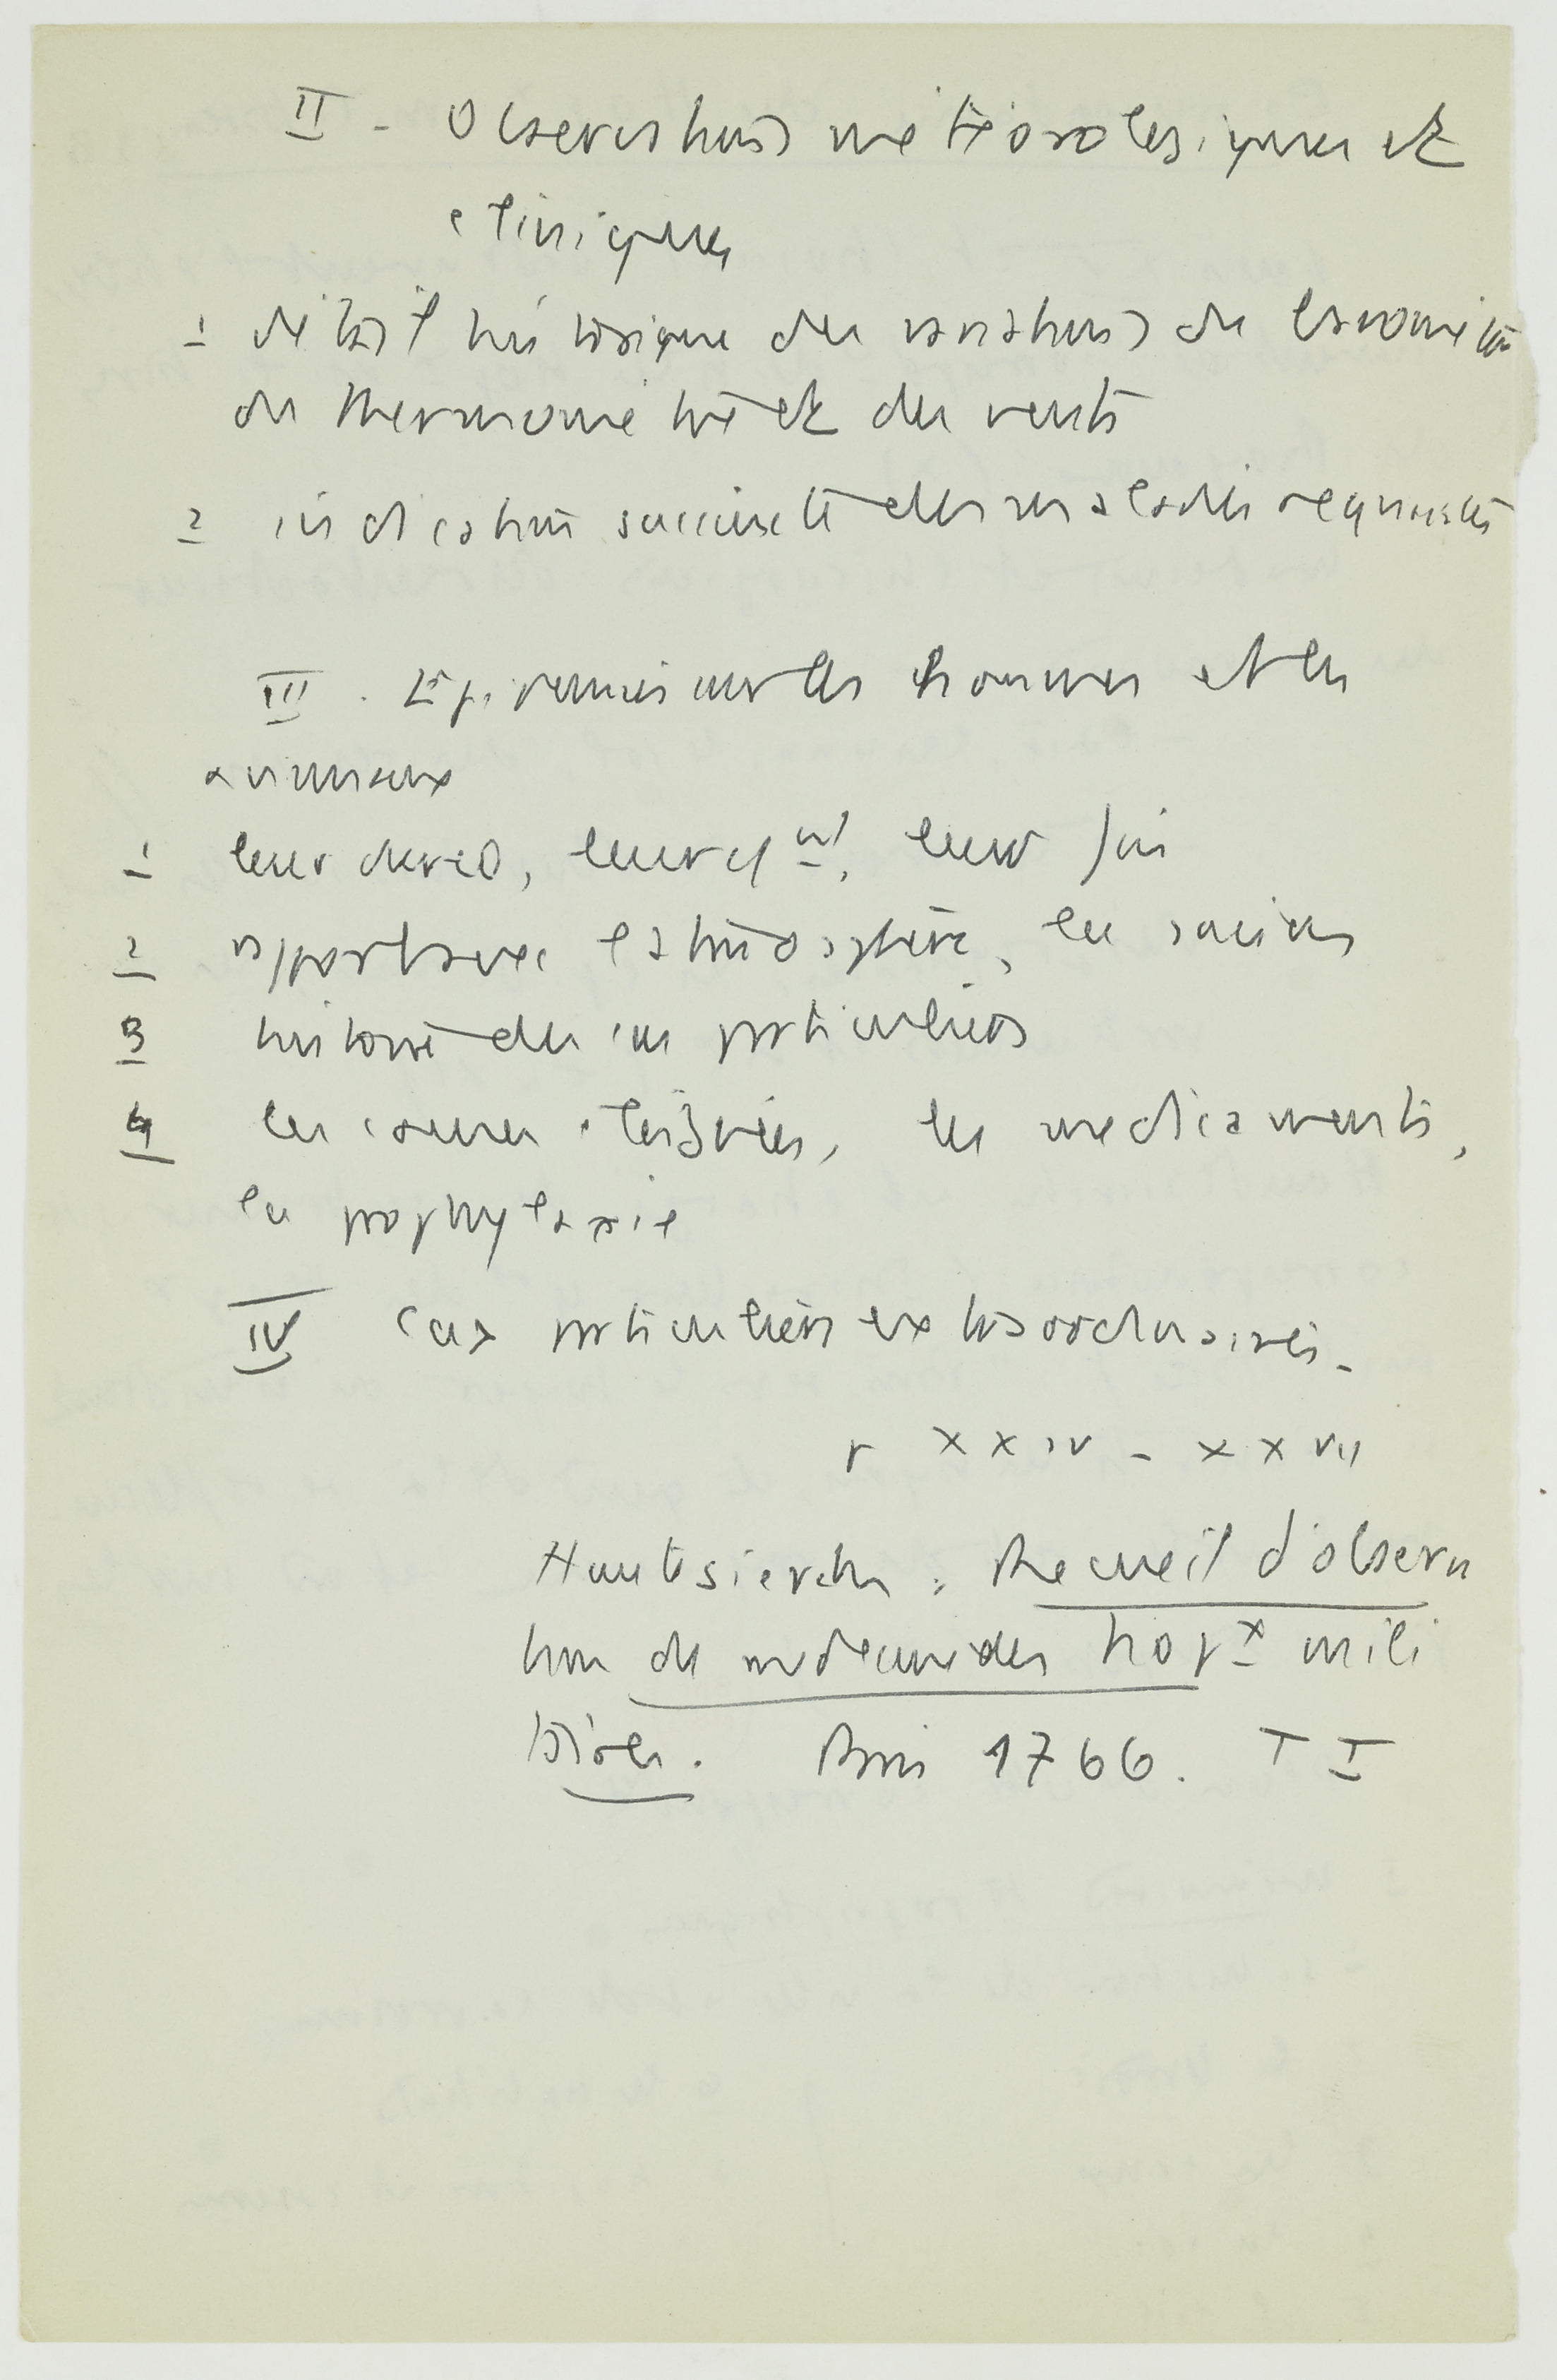 II - Observations météorologiques et
cliniques
1 détail historique des variations du baromètre
du thermomètre et des vents
2 indication succincte des maladies régnantes
III. Epidémies sur les hommes et les
animaux
1 leur début, leur cynt, leur fin
2 rapport avec l'atmosphère, les saisons
3 histoire des cas particuliers
4 les causes éloignées, les médicaments,
la prophylaxie
IV Cas particuliers extraordinaires.
p XXIV - XXVII
Hautesierck : Recueil d'observa
tion de médecine des hopx mili
taires. Paris 1766. T I